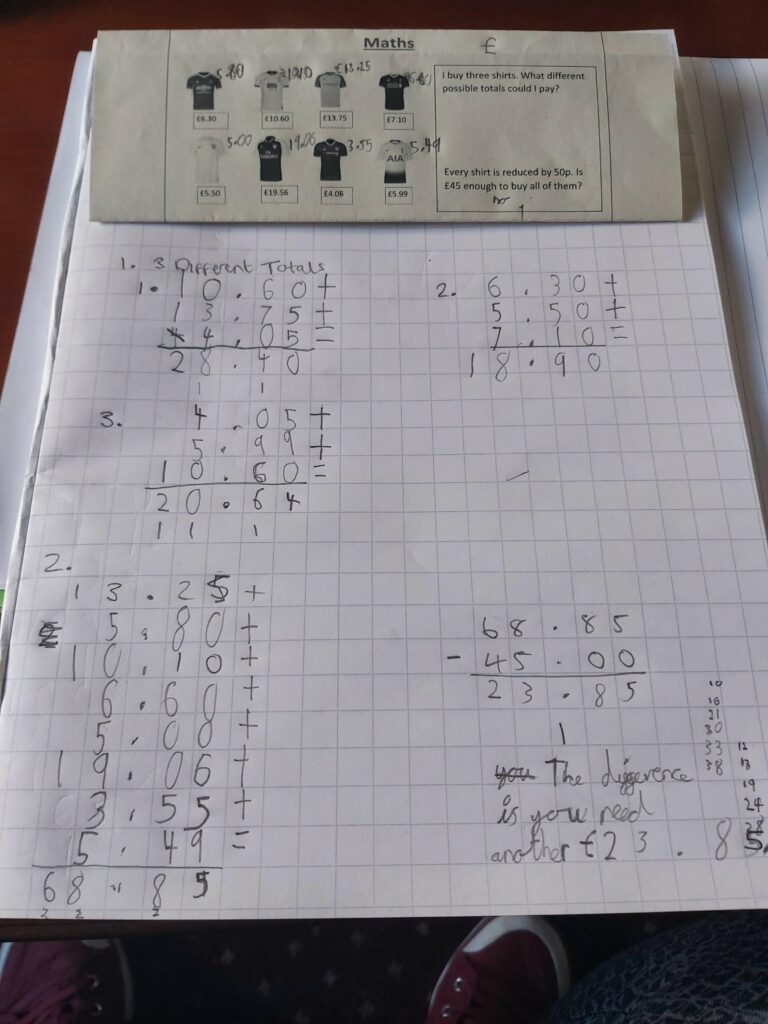 Maths £
5.80 £13.25
£6.30 £10.60 £13.75 £7.10
5.00 19.06 3.55 AIA 5.49
£5.50 £19.56 £4.05 £5.99
I buy three shirts. What different
possible totals could I pay?
Every shirt is reduced by 50p. Is
£45 enough to buy all of them?
no
1. 3 Different Totals
1. 10.60+
13.75+
4.05=
28.40
1 1
2. 6.30+
5.50+
7.10=
18.90
3. 4.05+
5.99+
10.60=
20.64
1 1 1
2.
13.25+
5.80+
10.10+
6.60+
5.00+
19.06+
3.55+
5.49=
68.85
2 2 2
68.85
- 45.00
23.85
1
The difference
is you need
another £23.85.
10
16
21
30
33
38
12
13
19
24
28